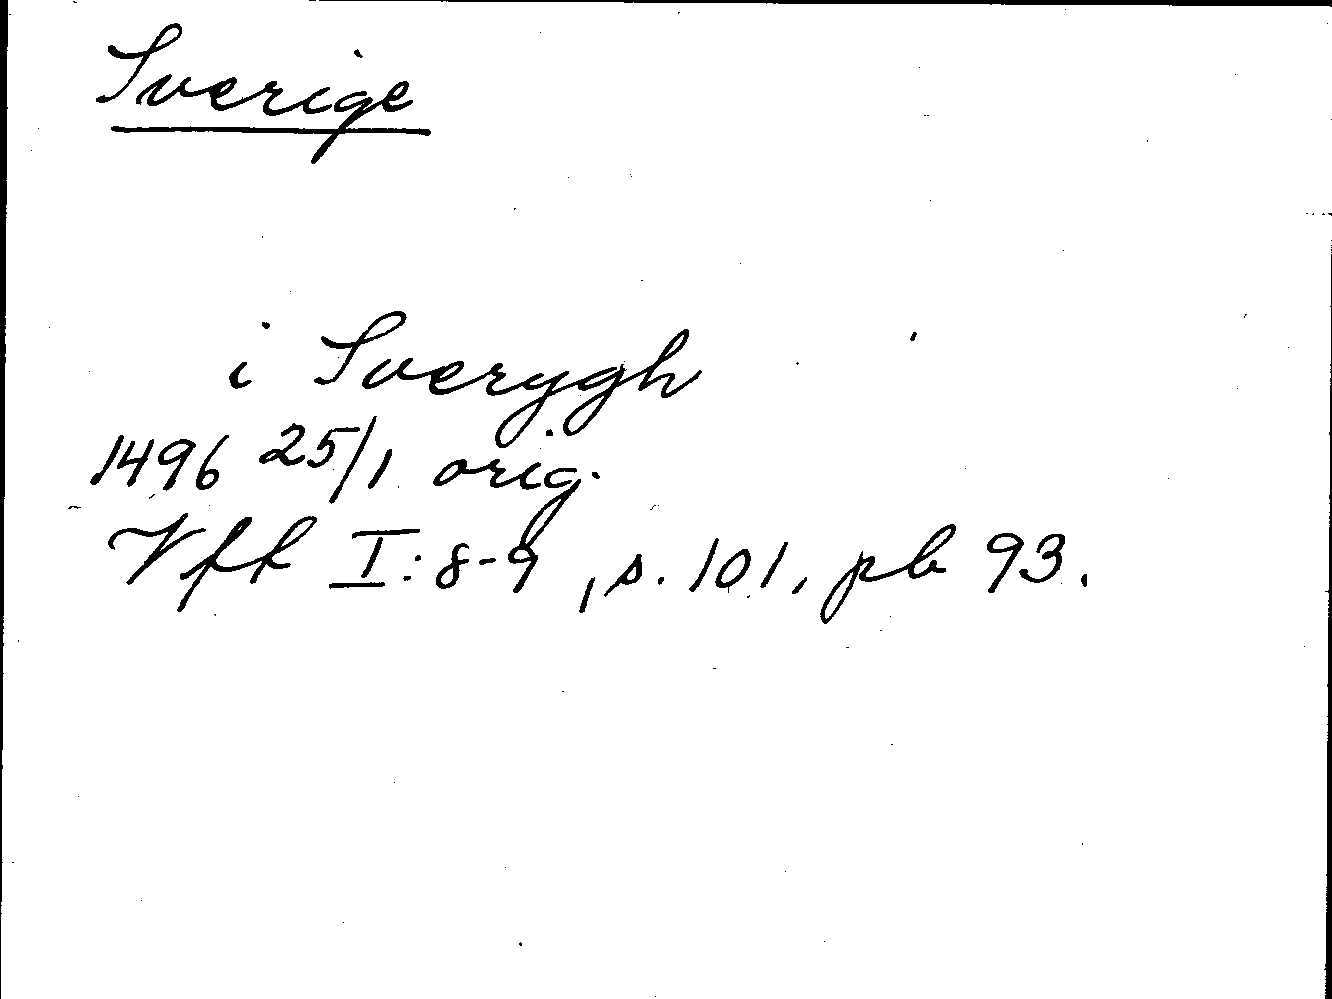 Sverige
i Sverygh
1496 25/1 orig.
Vff I:8-9, s. 101, pb 93.